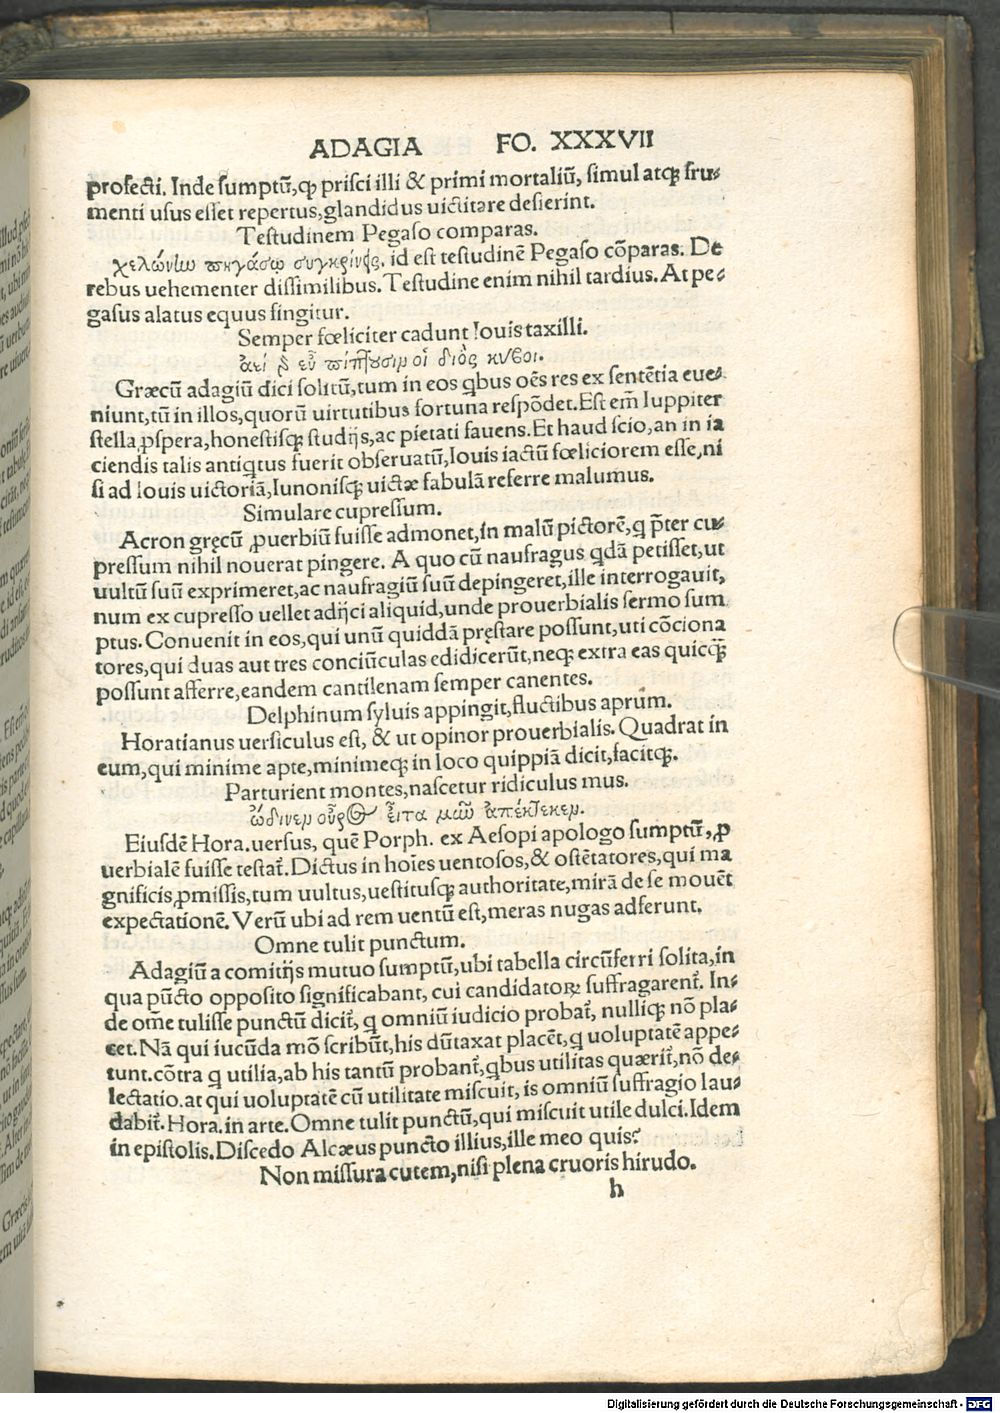 ADAGIA FO. XXXVII
profecti. Inde sumptũ, ꝙ prisci illi & primi mortaliũ, simul atqꝫ fru-
menti usus esset repertus, glandidus uictitare desierint.
Testudinem Pegaso comparas.
χελώνίω πηγάσῳ συγκρίνεις. id est testudinẽ Pegaso cõparas. De
rebus uehementer dissimilibus. Testudine enim nihil tardius. At pe-
gasus alatus equus fingitur.
Semper fœliciter cadunt Iouis taxilli.
ἀεὶ γὸ εὖ πίπτουσιν οἱ διὸς κύβοι.
Græcũ adagiũ dici solitũ, tum in eos ꝗbus oẽs res ex sentẽtia eue-
niunt, tũ in illos, quorũ uirtutibus fortuna respõdet. Est em̃ Iuppiter
stella ꝓspera, honestisqꝫ studijs, ac pietati fauens. Et haud scio, an in ia
ciendis talis antiꝗtus fuerit obseruatũ, Iouis iactũ fœliciorem esse, ni
si ad Iouis uictoriã, Iunonisqꝫ uictæ fabulã referre malumus.
Simulare cupressum.
Acron gręcũ ꝓuerbiũ fuisse admonet, in malũ pictorẽ, ꝗ p̃ter cu-
pressum nihil nouerat pingere. A quo cũ naufragus ꝗdã petisset, ut
uultũ suũ exprimeret, ac naufragiũ suũ depingeret, ille interrogauit,
num ex cupresso uellet adijci aliquid, unde prouerbialis sermo sum
ptus. Conuenit in eos, qui unũ quiddã pręstare possunt, uti cõciona
tores, qui duas aut tres conciũculas edidicerũt, neqꝫ extra eas quicꝗ̃
possunt afferre, eandem cantilenam semper canentes.
Delphinum syluis appingit, fluctibus aprum.
Horatianus uersiculus est, & ut opinor prouerbialis. Quadrat in
eum, qui minime apte, minimeqꝫ in loco quippiã dicit, facitqꝫ.
Parturient montes, nascetur ridiculus mus.
ὤδινεν οὖρος εἶτα μῦν ἀπέκτεκεν.
Eiusdẽ Hora. uersus, quẽ Porph. ex Aesopi apologo sumptũ, ꝓ
uerbialẽ fuisse testat̃. Dictus in hoĩes uentosos, & ostẽtatores, qui ma
gnificis ꝓmissis, tum uultus, uestitusqꝫ authoritate, mirã de se mouẽt
expectationẽ. Verũ ubi ad rem uentũ est, meras nugas adferunt.
Omne tulit punctum.
Adagiũ a comitijs mutuo sumptũ, ubi tabella circũferri solita, in
qua pũcto opposito significabant, cui candidatoꝝ suffragarent̃. In-
de om̃e tulisse punctũ dicit̃, ꝗ omniũ iudicio probat̃, nulliqꝫ nõ pla-
cet. Nã qui iucũda mõ scribũt, his dũtaxat placẽt, ꝗ uoluptatẽ appe-
tunt. cõtra ꝗ utilia, ab his tantũ probant̃, ꝗbus utilitas quærit̃, nõ de-
lectatio. at qui uoluptatẽ cũ utilitate miscuit, is omniũ suffragio lau-
dabit̃. Hora. in arte. Omne tulit punctũ, qui miscuit utile dulci. Idem
in epistolis. Discedo Alcæus puncto illius, ille meo quis?
Non missura cutem, nisi plena cruoris hirudo.
h
Digitalisierung gefördert durch die Deutsche Forschungsgemeinschaft - DFG